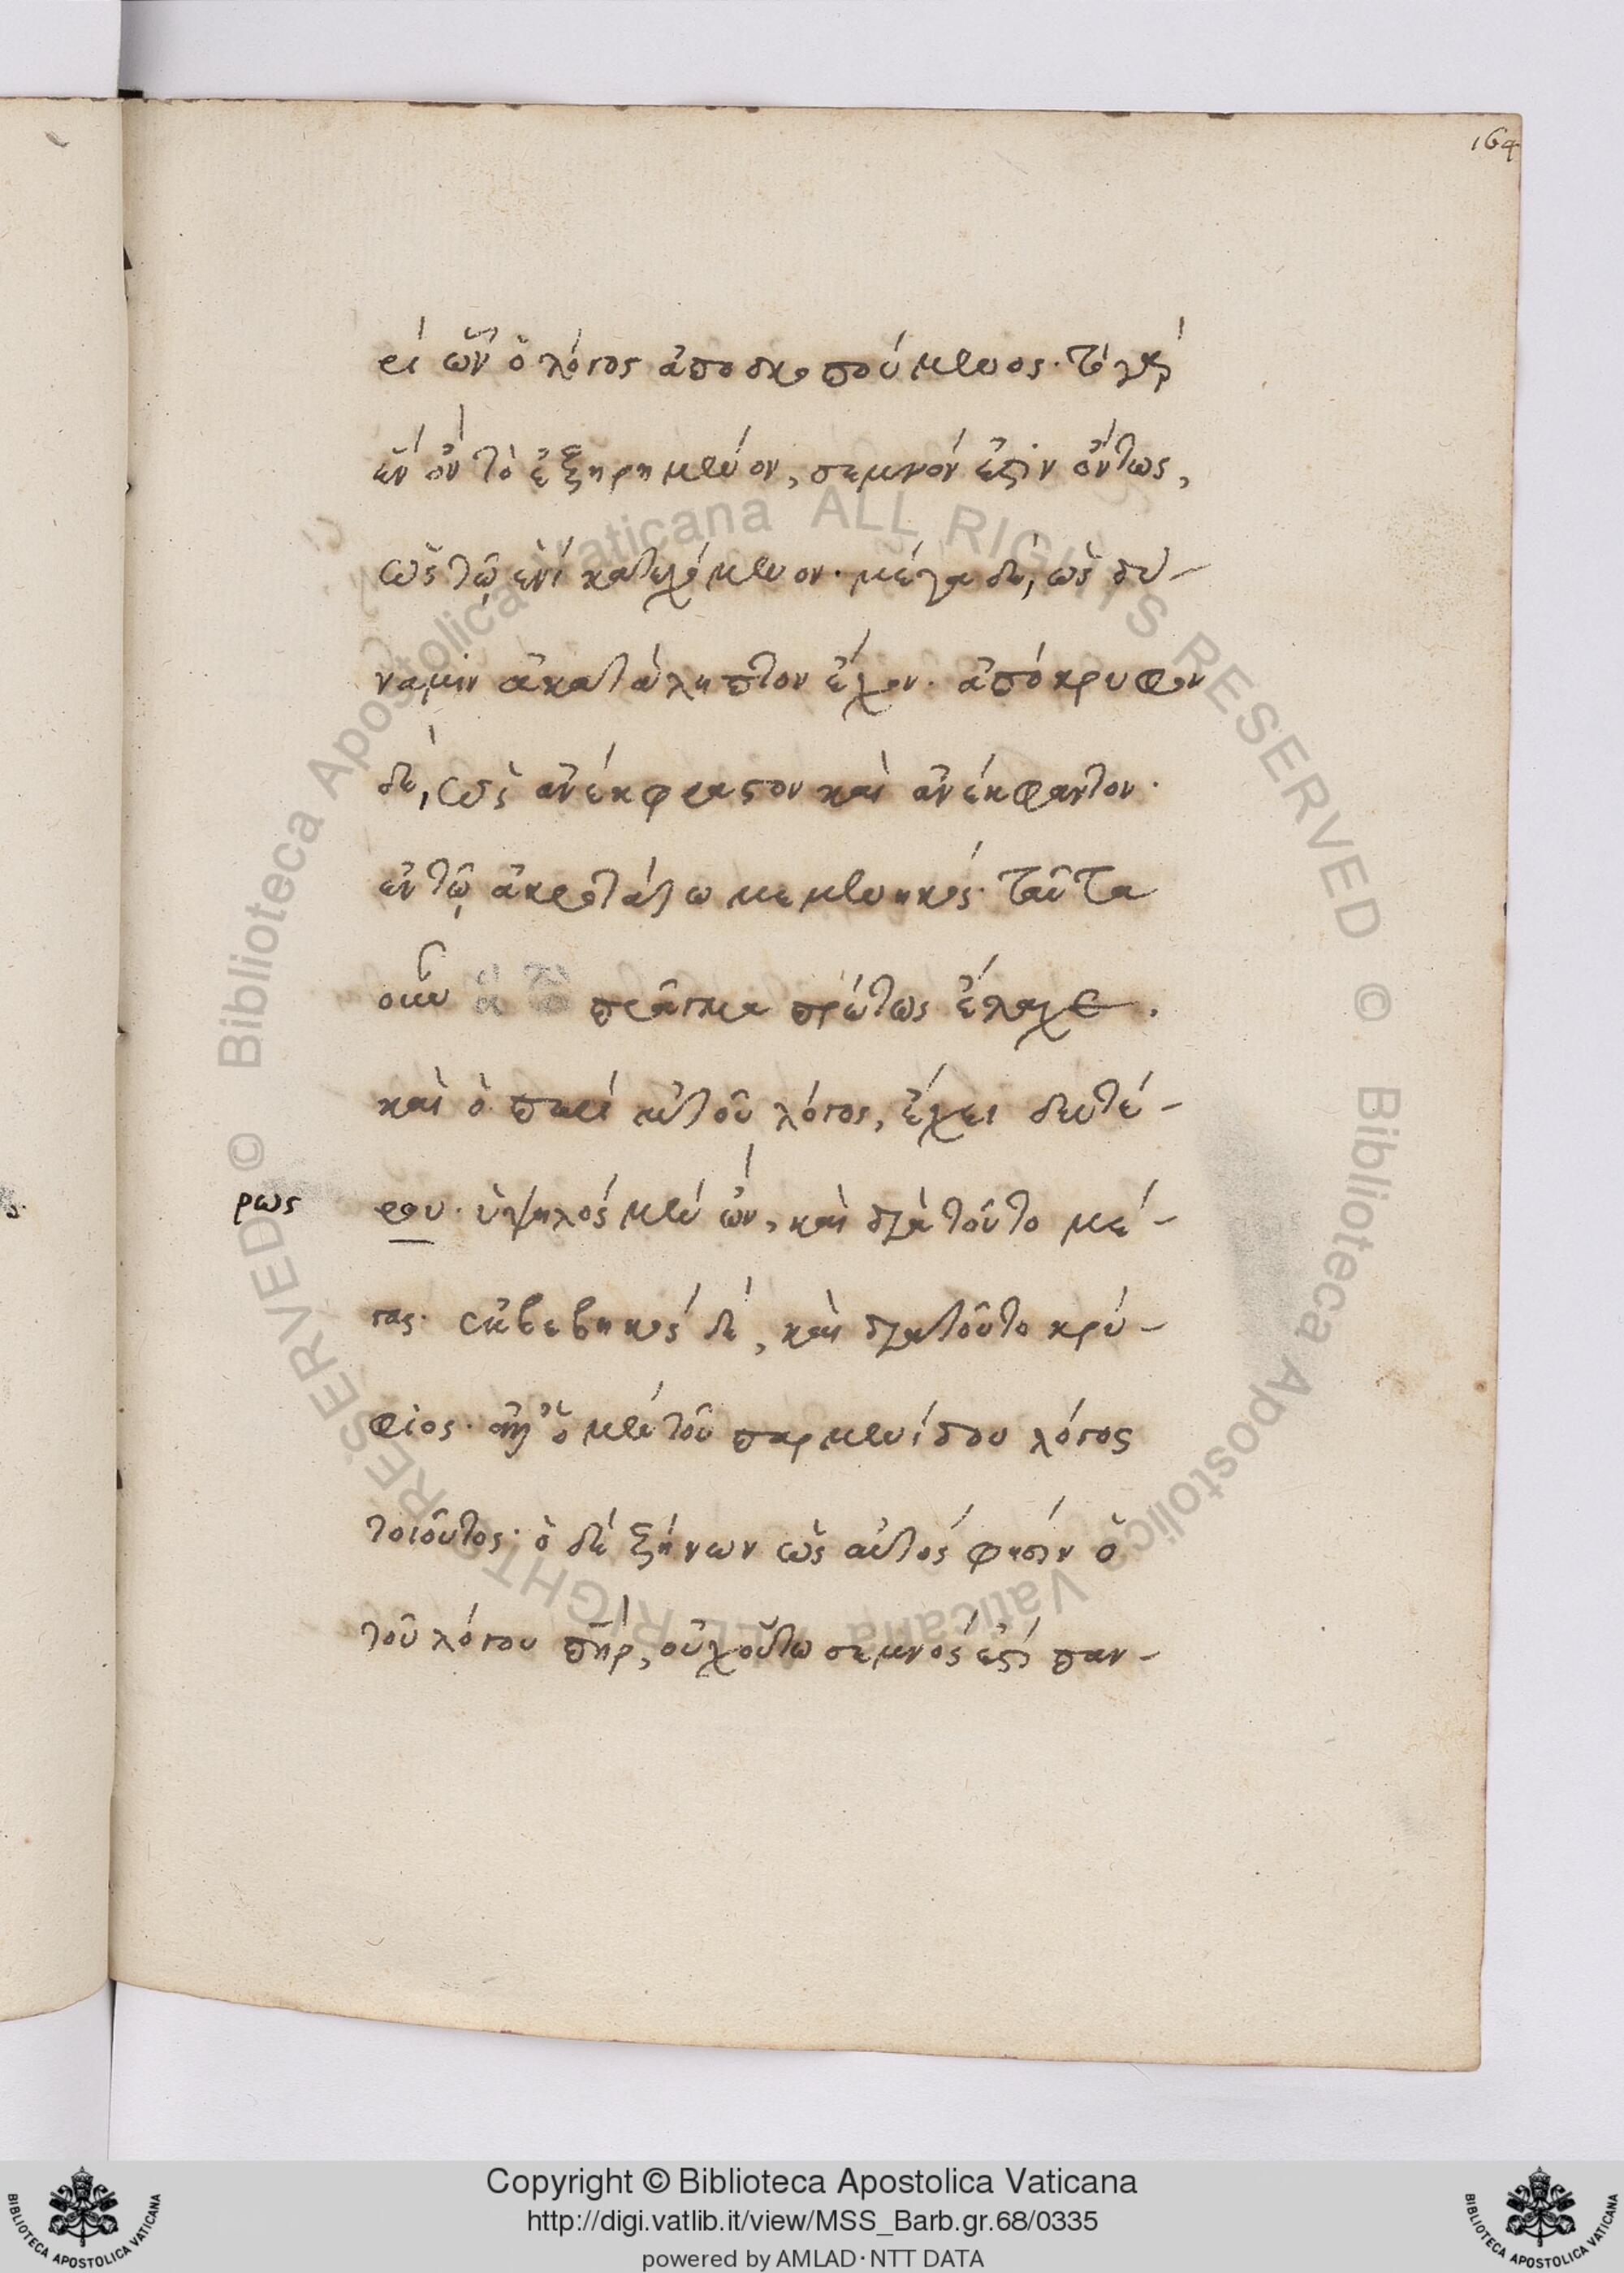 164
ρὶ ὧν ὁ λόγος ἀποσκοπούμενος. τὸ γὰρ
ἓν ὂν τὸ ἐξῃρημένον, σεμνόν ἐστιν ὄντως,
ὡς τῷ ἑνὶ κατεχόμενον. μέγα δὲ, ὡς δύ-
ναμιν ἀκατάληπτον ἔχον. ἀπόκρυφον
δὲ, ὡς ἀνέκφραστον καὶ ἀνέκφαντον.
ἐν τῷ ἀκροτάτω μεμενηκός. ταῦτα
οὖν ἃ τὸ πρᾶγμα πρώτως ἔλαχε.
καὶ ὁ περὶ αὐτοῦ λόγος, ἔχει δευτέ-
ρως
ρου. ὑψηλὸς μὲν ὢν, καὶ διὰ τοῦτο μέ-
γας. ἐκβεβηκὸς δὲ, καὶ διατοῦτο κρύ-
φιος. ἀλλ' ὁ μὲν τοῦ παρμενίδου λόγος
τοιοῦτος. ὁ δὲ ξήνων ὡς αὐτός φησιν ὁ
τοῦ λόγου πῆρ, οὐχ οὕτω σεμνός ἐστι παν-
Copyright © Biblioteca Apostolica Vaticana
http://digi.vatlib.it/view/MSS_Barb.gr.68/0335
powered by AMLAD · NTT DATA
BIBLIOTECA APOSTOLICA VATICANA
BIBLIOTECA APOSTOLICA VATICANA
© Biblioteca Apostolica Vaticana ALL RIGHTS RESERVED © Biblioteca Apostolica Vaticana ALL RIGHTS RESERVED